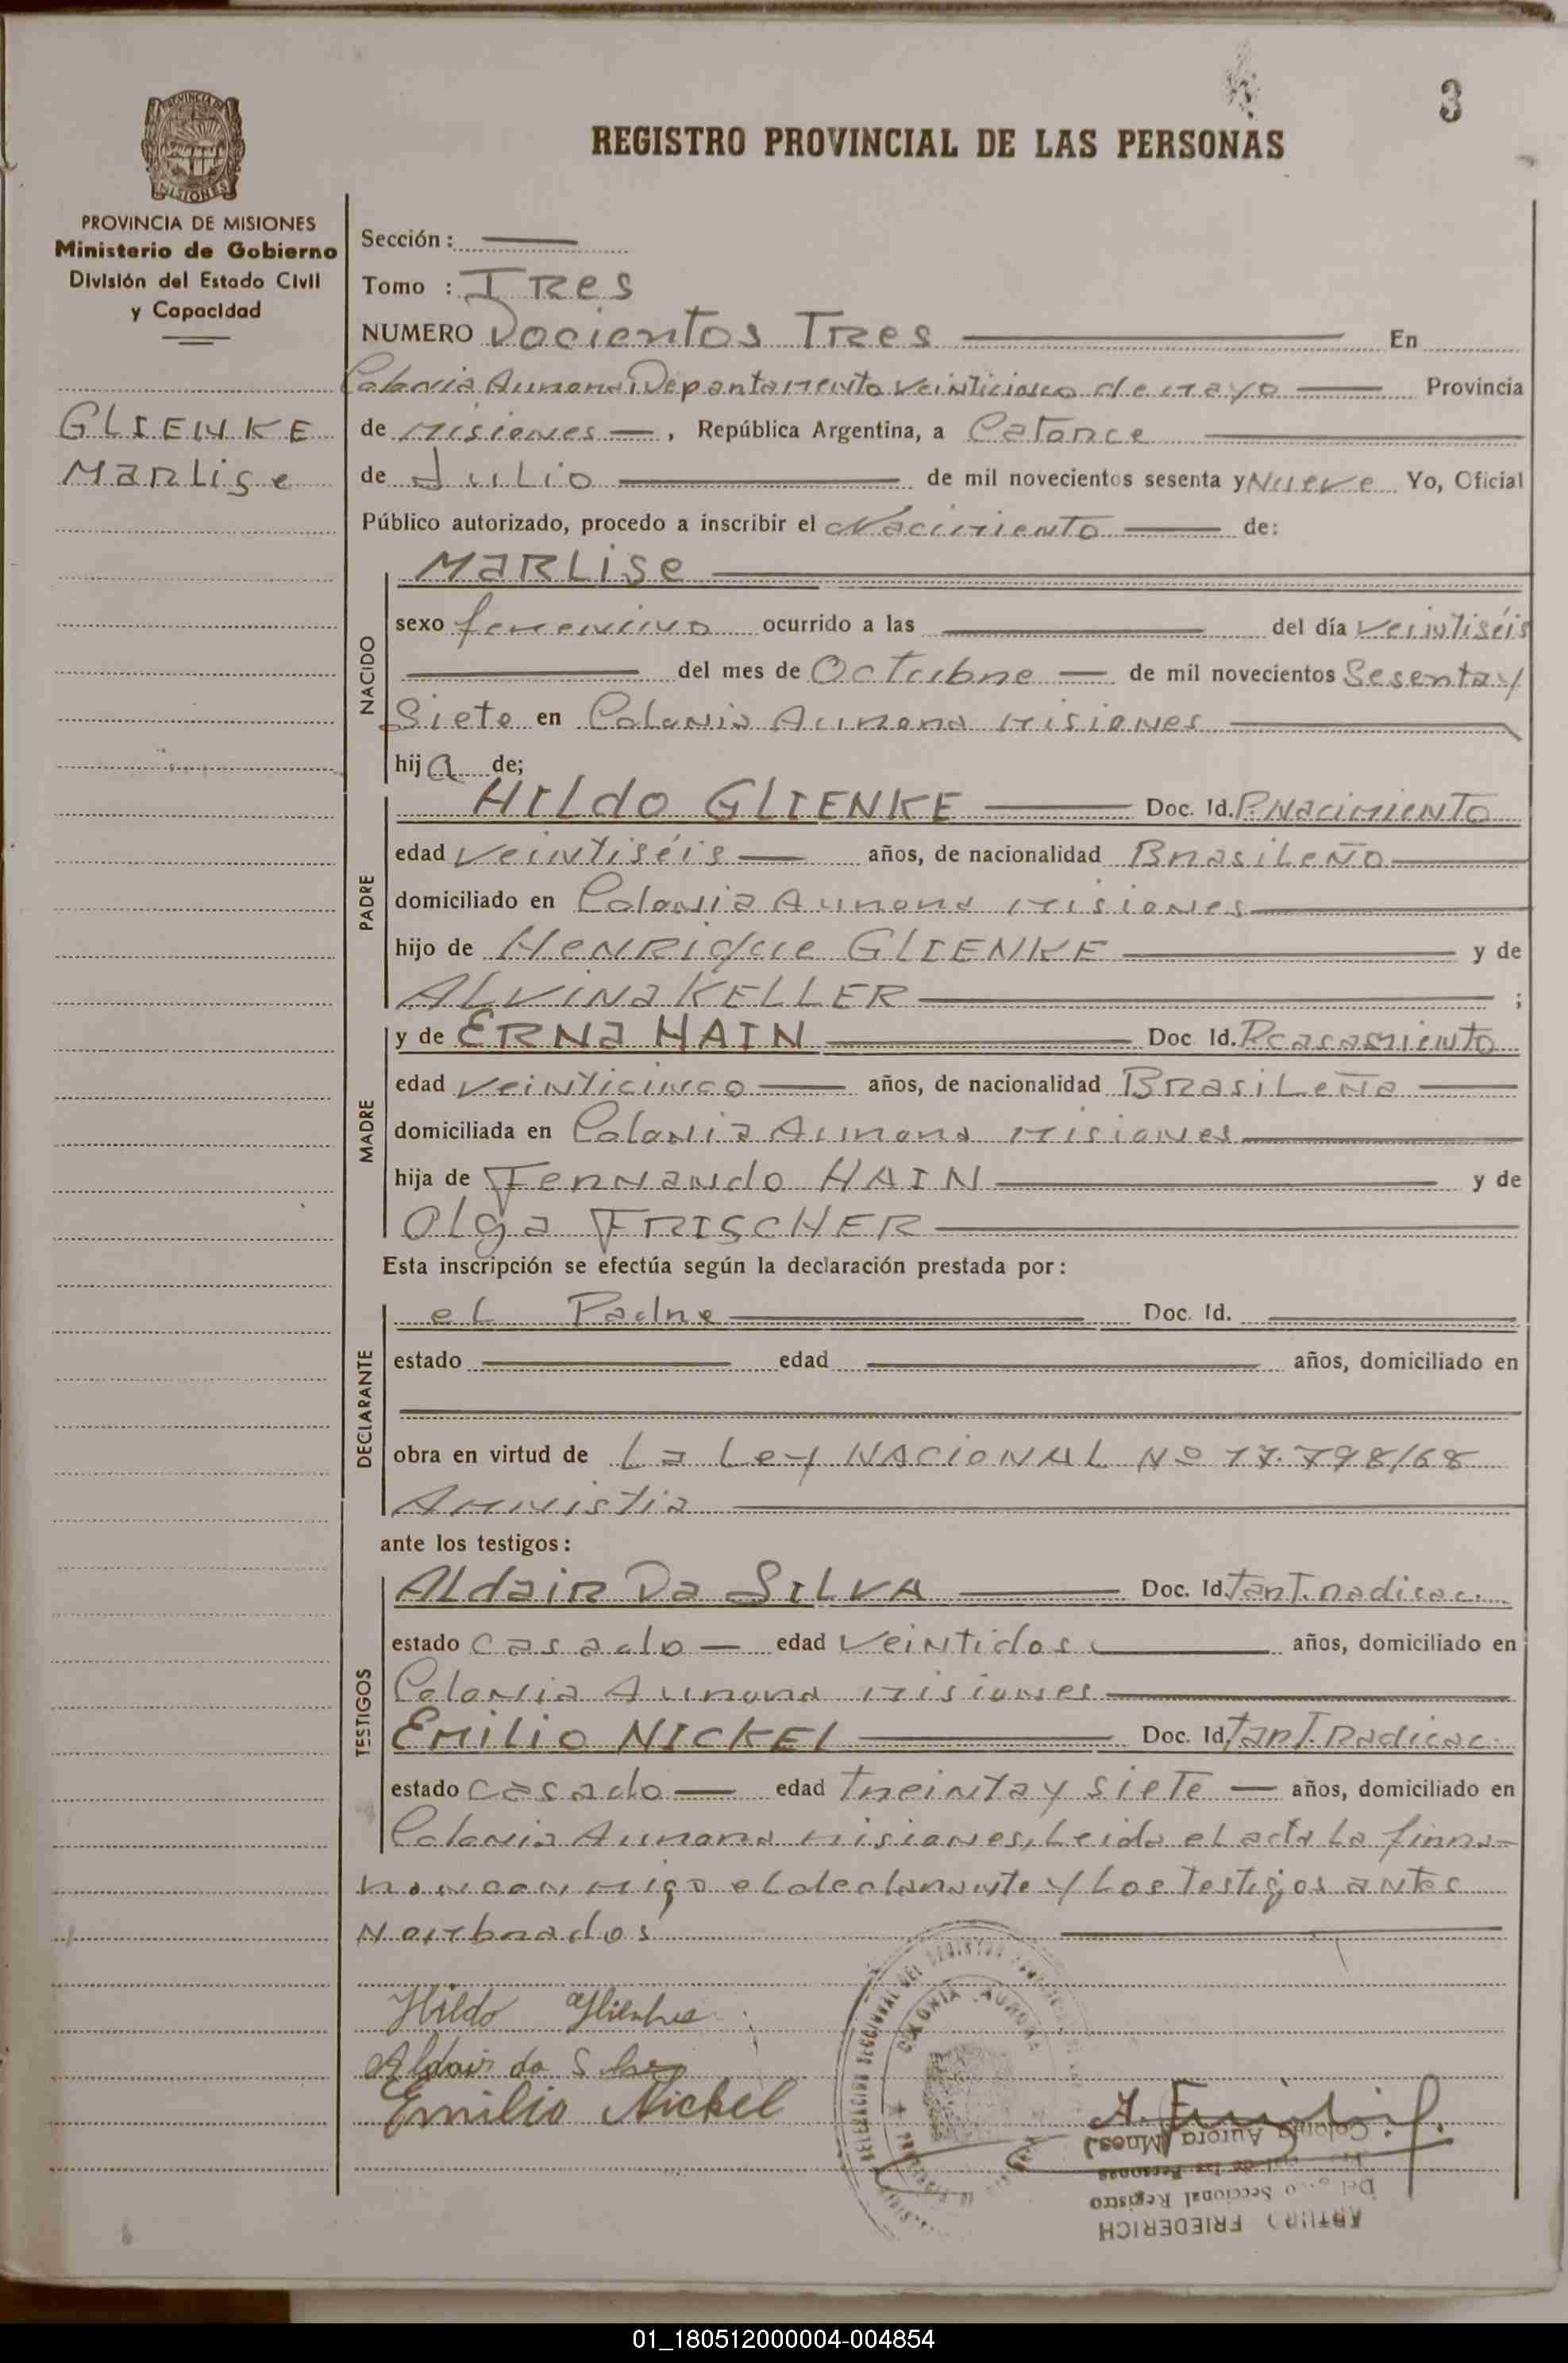 3
REGISTRO PROVINCIAL DE LAS PERSONAS
PROVINCIA DE MISIONES
Ministerio de Gobierno
División del Estado Civil
y Capacidad
GLIENKE
Marlise
Sección :
Tomo : Tres
NUMERO Docientos Tres En
Colonia Aurora, Departamento Veinticinco de mayo Provincia
de Misiones , República Argentina, a Catorce
de Julio de mil novecientos sesenta y Nueve Yo, Oficial
Público autorizado, procedo a inscribir el Nacimiento de:
NACIDO
Marlise
sexo femenino ocurrido a las del día veintiséis
del mes de Octubre de mil novecientos Sesenta y
Siete en Colonia Aurora Misiones
hija de;
PADRE
Hildo GLIENKE Doc. Id. P. Nacimiento
edad veintiséis años, de nacionalidad Brasileño
domiciliado en Colonia Aurora Misiones
hijo de Henrique GLIENKE y de
Alvina KELLER ;
MADRE
y de Erna HAIN Doc Id. P casamiento
edad veinticinco años, de nacionalidad Brasileña
domiciliada en Colonia Aurora Misiones
hija de Fernando HAIN y de
Olga FRISCHER
Esta inscripción se efectúa según la declaración prestada por :
DECLARANTE
el Padre Doc. Id.
estado edad años, domiciliado en
obra en virtud de La Ley NACIONAL Nº 17.798/68
Amnistia
ante los testigos :
TESTIGOS
Aldair Da SILVA Doc. Id. Tarj. radicac.
estado casado edad Veintidos años, domiciliado en
Colonia Aurora Misiones
Emilio NICKEL Doc. Id. Tarj. Radicac.
estado casado edad Treinta y Siete años, domiciliado en
Colonia Aurora Misiones, Leida el acta La firma-
ron conmigo el declarante y Los Testigos antes
Nombrados
Hildo Glienke
Aldair da Silva
Emilio Nickel
COLONIA AURORA
Colonia Aurora (Mnes.)
Seccional Registro
ARTURO FRIEDERICH
01_180512000004-004854